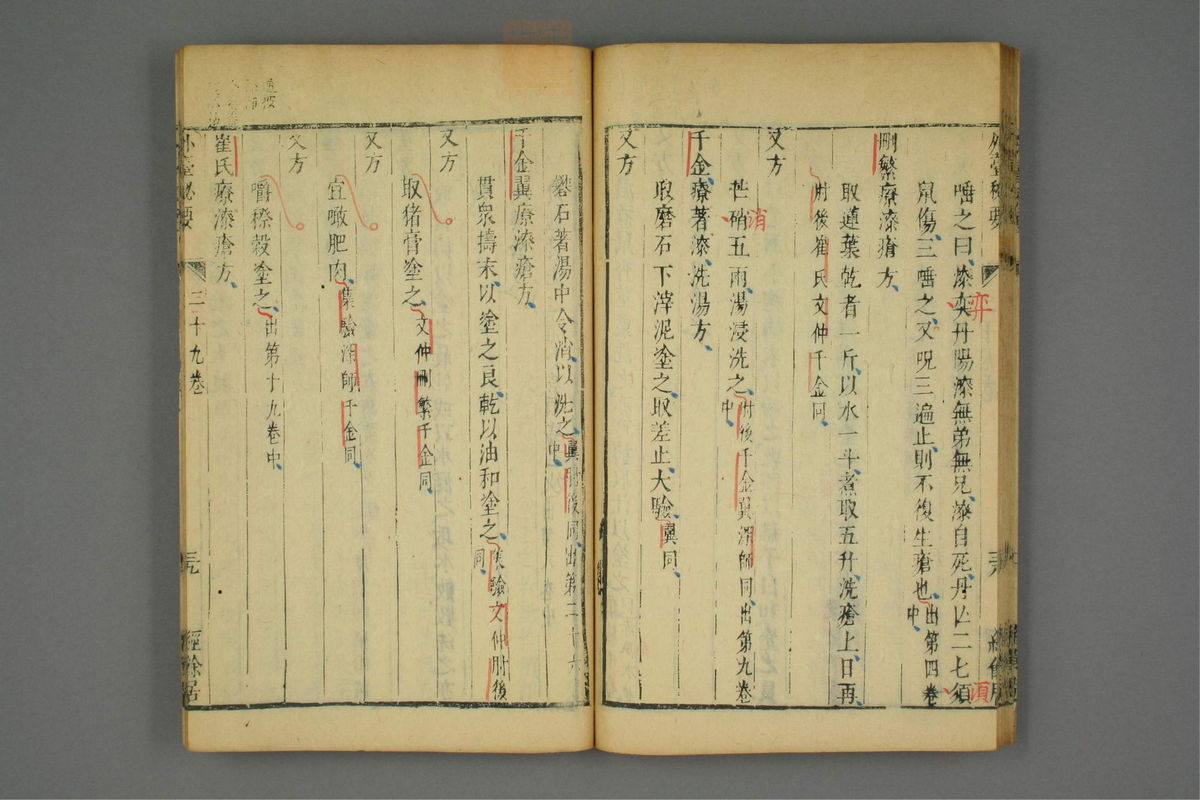 唾之曰漆奕丹陽漆無弟無兄漆自死丹亡二七須
鼠傷三唾之又呪三遍止則不復生瘡也出第四卷中
刪繁療漆瘡方
取蓮葉乾者一斤以水一斗煮取五升洗瘡上日再
肘後崔氏文仲千金同
又方
芒硝五兩湯浸洗之肘後千金翼深師同出第九卷中
千金療著漆洗湯方
取磨石下滓泥塗之取差止大驗翼同
又方
礬石著湯中令消以洗之翼肘後同出第二十六中
千金翼療漆瘡方
貫衆擣末以塗之良乾以油和塗之集驗文仲肘後同
又方
取猪膏塗之文仲刪繁千金同
又方
宜噉肥肉集驗深師千金同
又方
嚼穄穀塗之出第十九卷中
崔氏療漆瘡方
外臺秘要
二十九卷
三九
經餘居
弈
消
須